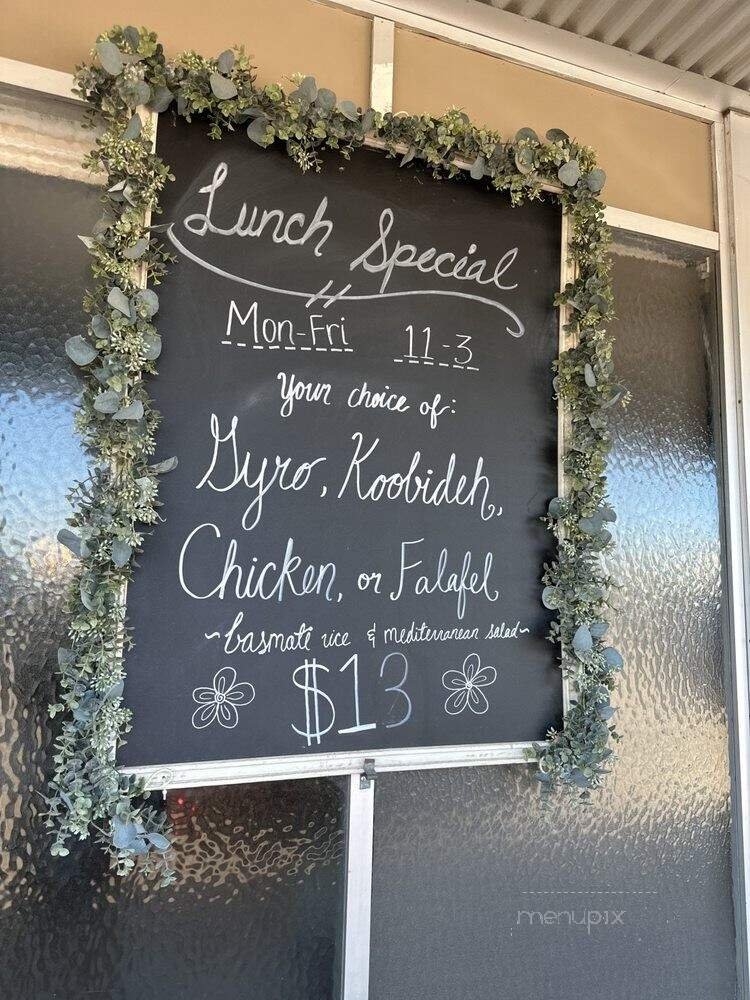 Lunch Special
Mon-Fri 11-3
Your choice of:
Gyro, Koobideh,
Chicken, or Falafel
~basmati rice & mediterranean salad~
$13
menupix